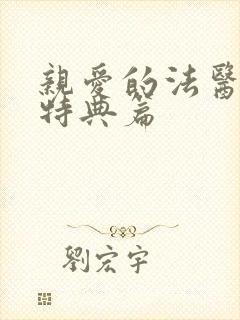 親愛的法醫
特典篇
劉宏宇